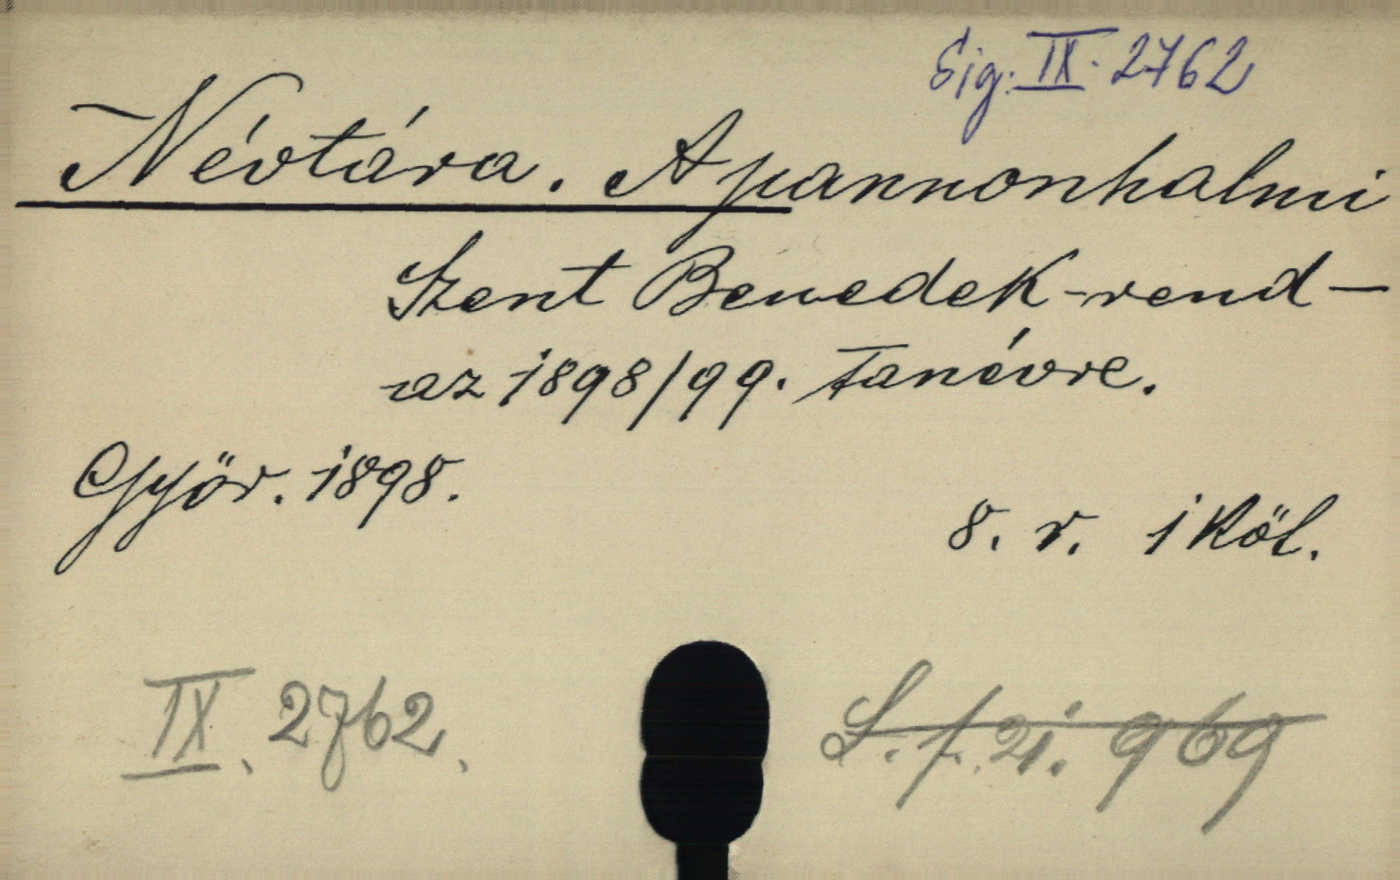 Sig. IX. 2762
Névtára. A pannonhalmi
Szent Benedek-rend-
az 1898/99. tanévre.
Győr. 1898.
8. r. 1 Köt.
IX. 2762.
969